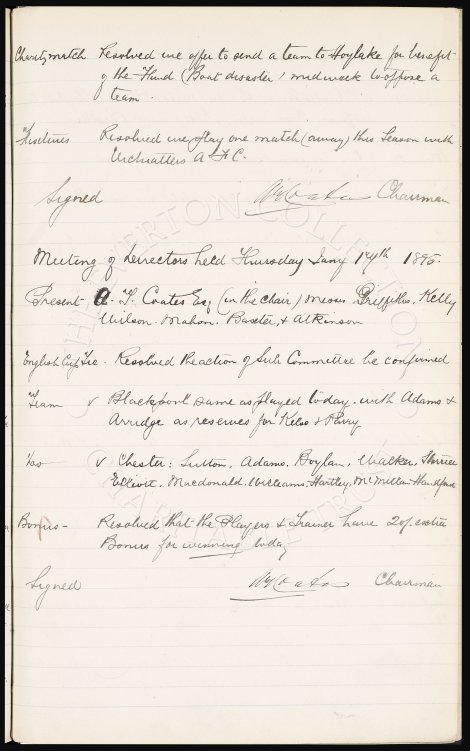 Charity match Resolved we offer to send a team to Hoylake for benefit
of the Fund (Boat disaster) midweek to oppose a
team.
Fixtures Resolved we play one match (away) this Season with
A F C.
Signed Chairman
Meeting of Directors held Thursday Jany 17th 1895.
Present A. T. Coates Esq (in the chair) Messrs Griffiths, Kelly
Wilson. Mahon. Baxter, & Atkinson
English Cup Tie. Resolved the action of Sub Committee be confirmed
Team v Blackpool same as played today. with Adams &
Arridge as reserves for Kelso & Parry
Do v Chester: Sutton. Adams. Boylan. Walker. Storrier
Elliott. Macdonald. Williams. Hartley. McMillan. Handford
Bonus - Resolved that the Players & Trainer have 20/. extra
Bonus for winning today
Signed Chairman
THE EVERTON COLLECTION
CHARITABLE TRUST